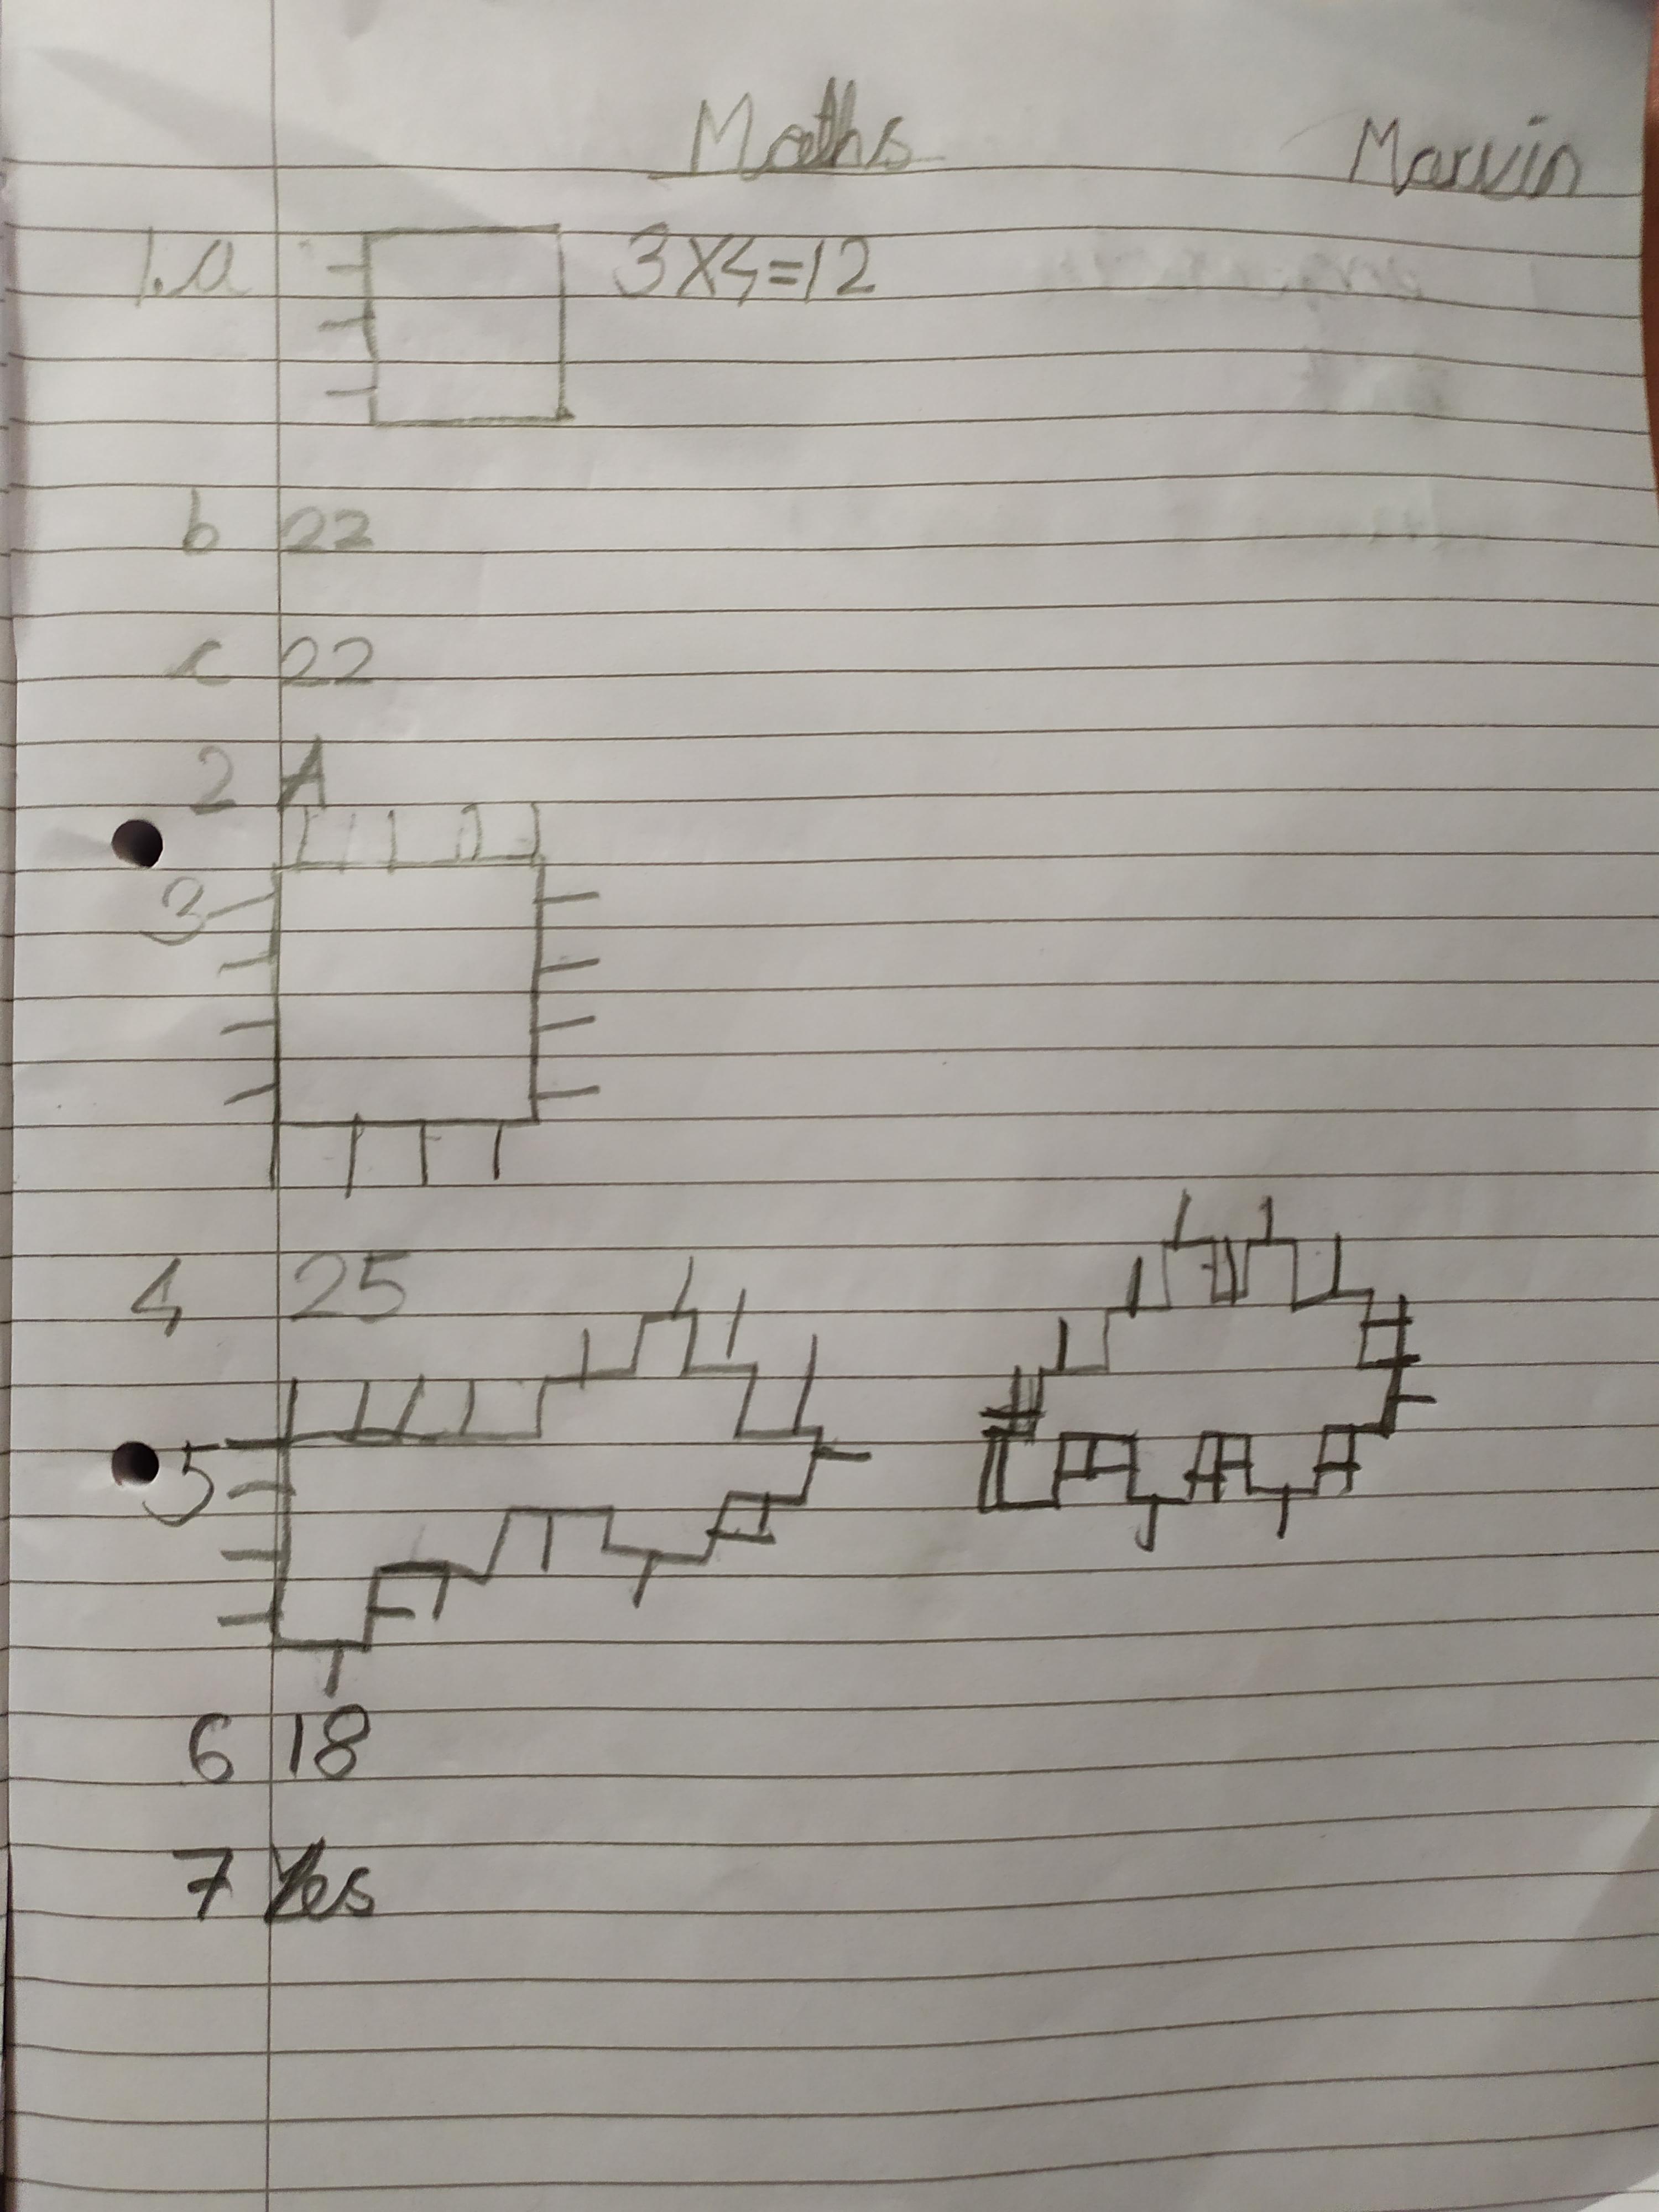 Maths
Marvin
1.a 3×4=12
b 22
c 22
2 A
3
4 25
5
6 18
7 Yes